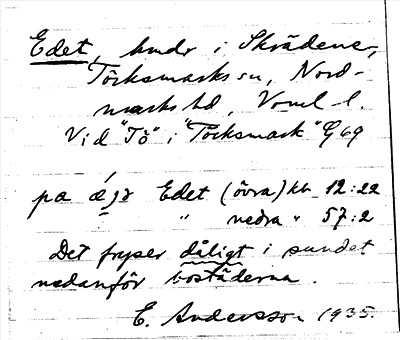 Edet, hmdr i Skrädene,
Töcksmarks sn, Nord-
marks hd, Vrml. l.
Vid "Tö" i "Töcksmark" G 69
på Edet (övra) kb 12:22
" nedra " 57:2
Det fryser dåligt i sundet
nedanför bostäderna.
E. Andersson 1935.